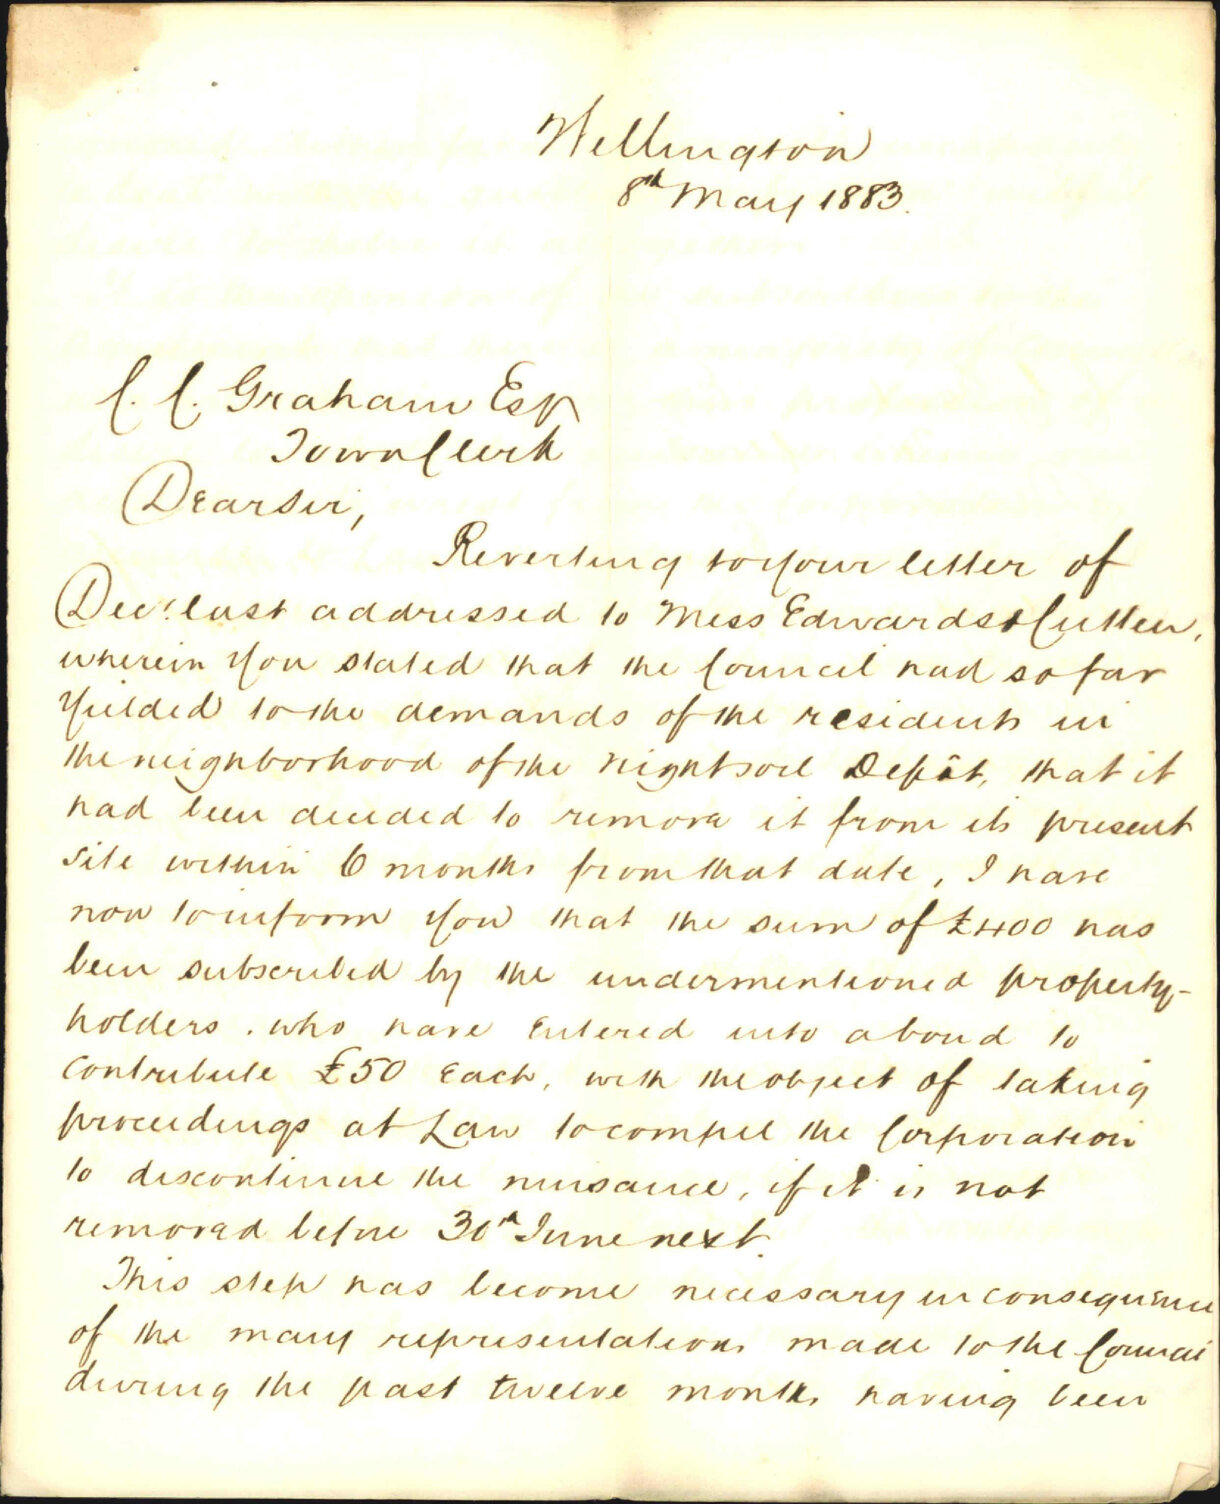 Wellington
8th May 1883.
C. C. Graham Esq
Town Clerk
Dear Sir,
Reverting to your letter of
Decr. last addressed to Mess Edwards & Cutten,
wherein you stated that the Council had so far
yielded to the demands of the residents in
the neighborhood of the nightsoil Depôt, that it
had been decided to remove it from its present
site within 6 months from that date, I have
now to inform you that the sum of £400 has
been subscribed by the undermentioned property-
holders. who have entered into a bond to
contribute £50 each, with the object of taking
proceedings at Law to compel the Corporation
to discontinue the nuisance, if it is not
removed before 30th June next.
This step has become necessary in consequence
of the many representations made to the Council
during the past twelve months having been